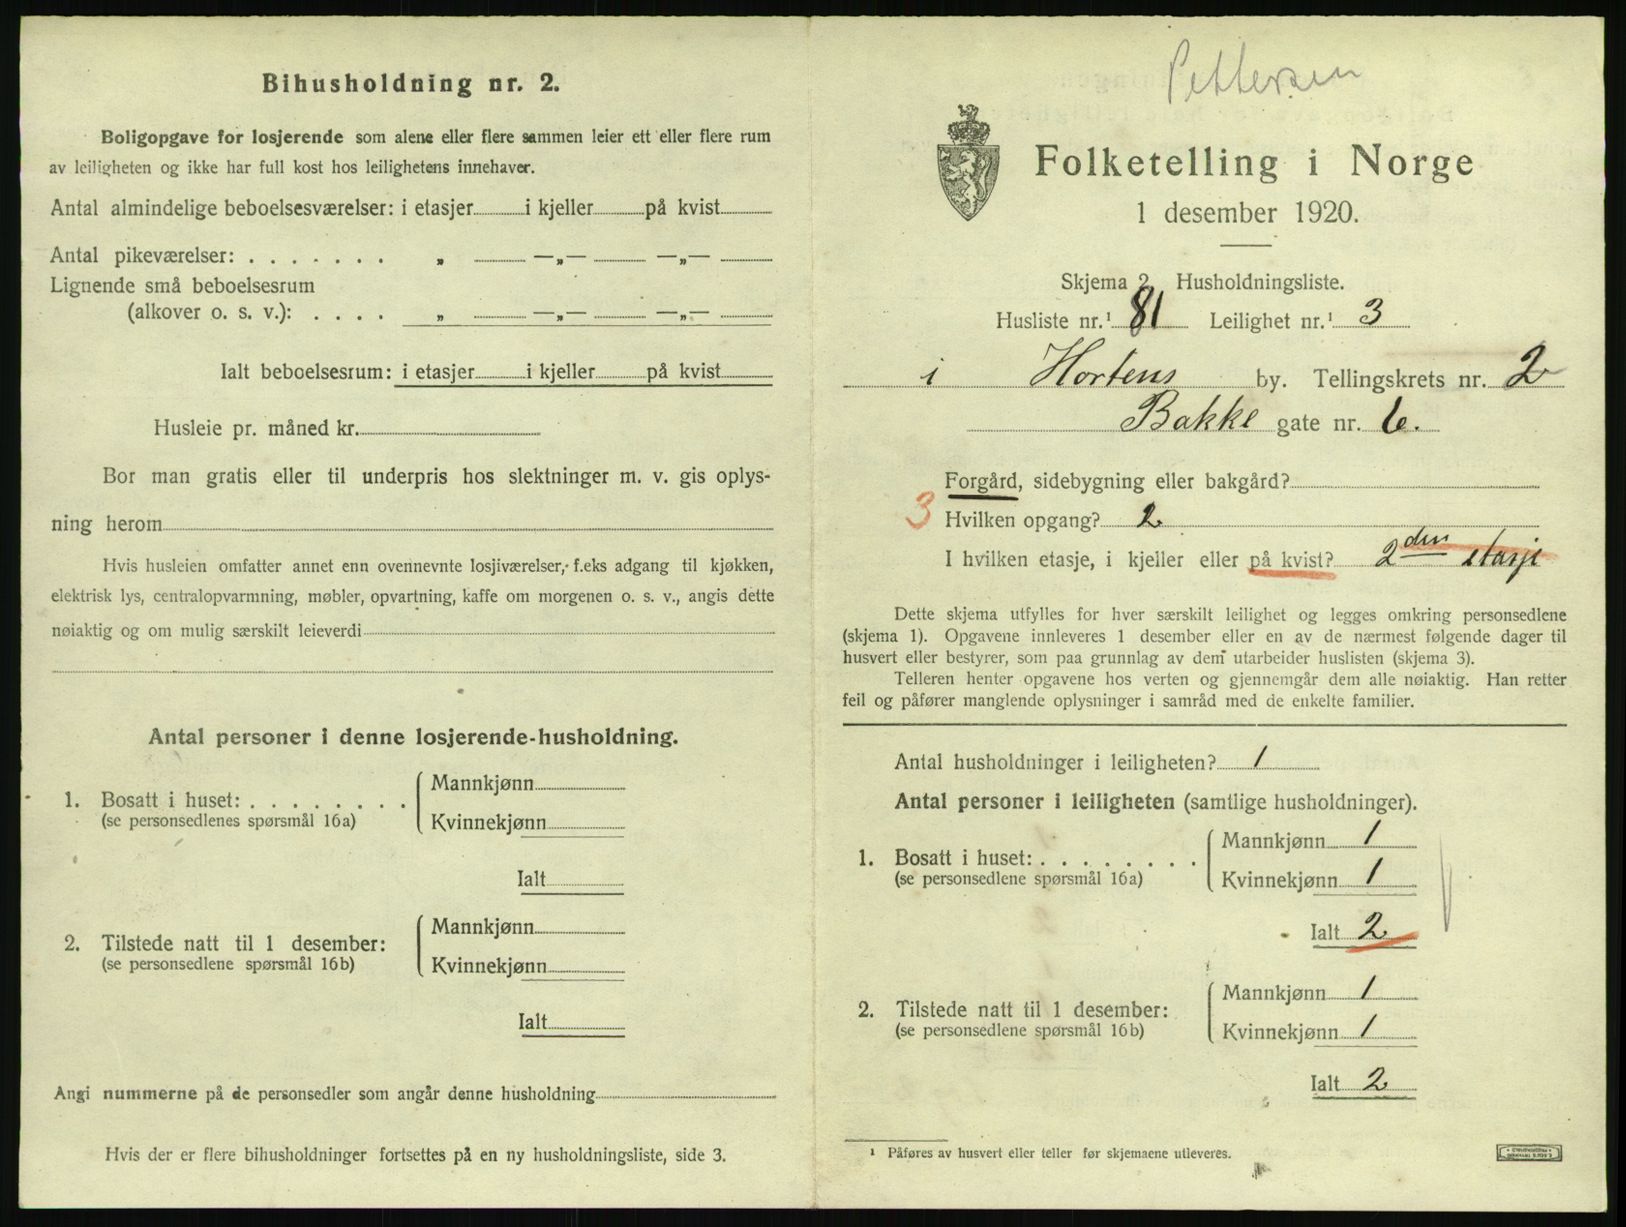 Bihusholdning nr. 2.
Boligopgave for losjerende som alene eller flere sammen leier ett eller flere rum
av leiligheten og ikke har full kost hos leilighetens innehaver.
Antal almindelige beboelsesværelser: i etasjer i kjeller på kvist
Antal pikeværelser: . . . . . . . „ —„— —„—
Lignende små beboelsesrum
(alkover o. s. v.): . . . . „ —„— —„—
Ialt beboelsesrum: i etasjer i kjeller på kvist
Husleie pr. måned kr.
Bor man gratis eller til underpris hos slektninger m. v. gis oplys-
ning herom
Hvis husleien omfatter annet enn ovennevnte losjiværelser, f.eks adgang til kjøkken,
elektrisk lys, centralopvarmning, møbler, opvartning, kaffe om morgenen o. s. v., angis dette
nøiaktig og om mulig særskilt leieverdi
Antal personer i denne losjerende-husholdning.
1. Bosatt i huset: . . . . . . . .
(se personsedlenes spørsmål 16a)
Mannkjønn
Kvinnekjønn
Ialt
2. Tilstede natt til 1 desember:
(se personsedlene spørsmål 16b)
Mannkjønn
Kvinnekjønn
Ialt
Angi nummerne på de personsedler som angår denne husholdning
Hvis der er flere bihusholdninger fortsettes på en ny husholdningsliste, side 3.
Pettersen
Folketelling i Norge
1 desember 1920.
Skjema 2 Husholdningsliste.
Husliste nr.¹ 81 Leilighet nr.¹ 3
i Hortens by. Tellingskrets nr. 2
Bakke gate nr. 6.
Forgård, sidebygning eller bakgård?
3 Hvilken opgang? 2
I hvilken etasje, i kjeller eller på kvist? 2den etasje
Dette skjema utfylles for hver særskilt leilighet og legges omkring personsedlene
(skjema 1). Opgavene innleveres 1 desember eller en av de nærmest følgende dager til
husvert eller bestyrer, som paa grunnlag av dem utarbeider huslisten (skjema 3).
Telleren henter opgavene hos verten og gjennemgår dem alle nøiaktig. Han retter
feil og påfører manglende oplysninger i samråd med de enkelte familier.
Antal husholdninger i leiligheten? 1
Antal personer i leiligheten (samtlige husholdninger).
1. Bosatt i huset: . . . . . . . .
(se personsedlene spørsmål 16a)
Mannkjønn 1
Kvinnekjønn 1
Ialt 2
2. Tilstede natt til 1 desember:
(se personsedlene spørsmål 16b)
Mannkjønn 1
Kvinnekjønn 1
Ialt 2
¹ Påføres av husvert eller teller før skjemaene utleveres.